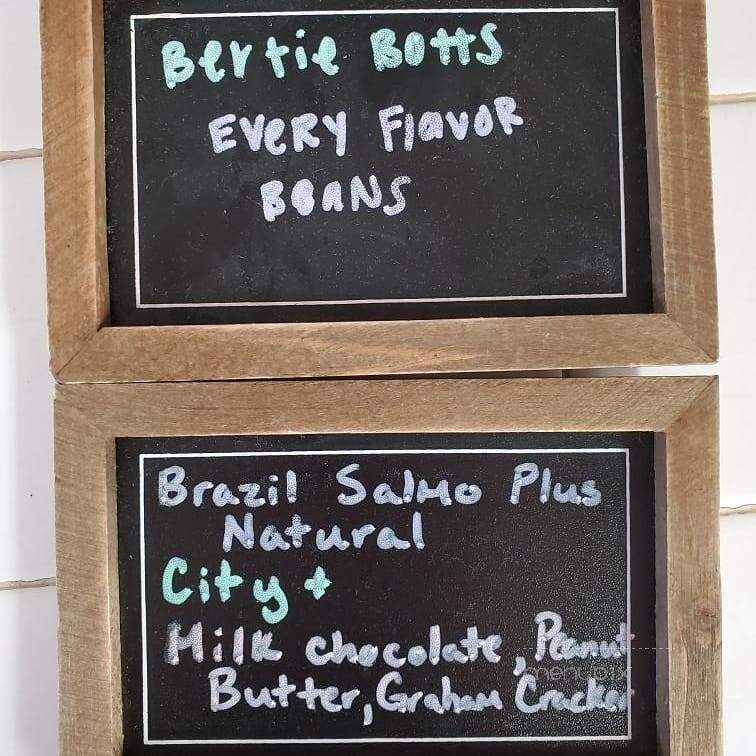 Bertie Botts
EVERY FlavOR
BEANS
Brazil Salmo Plus
Natural
City +
Milk chocolate, Peanut
Butter, Graham Cracker
menupix